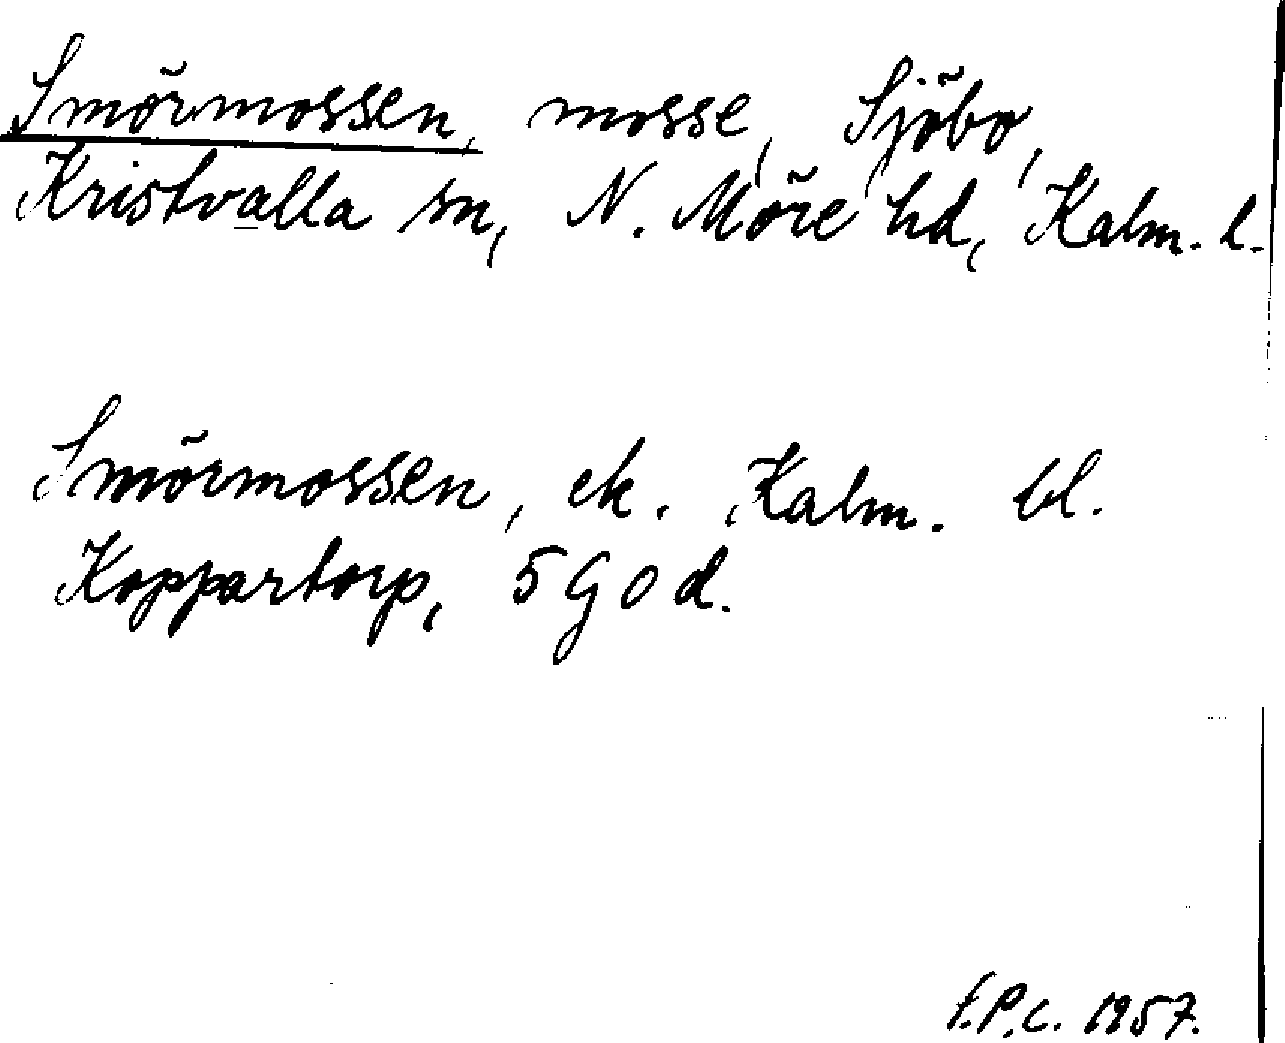 Smörmossen, mosse, Sjöbo,
Kristvalla sn, N. Möre hd, Kalm. l.
Smörmossen, ek. Kalm. bl.
Koppartorp, 5 G O d.
f.P.c. 1957.